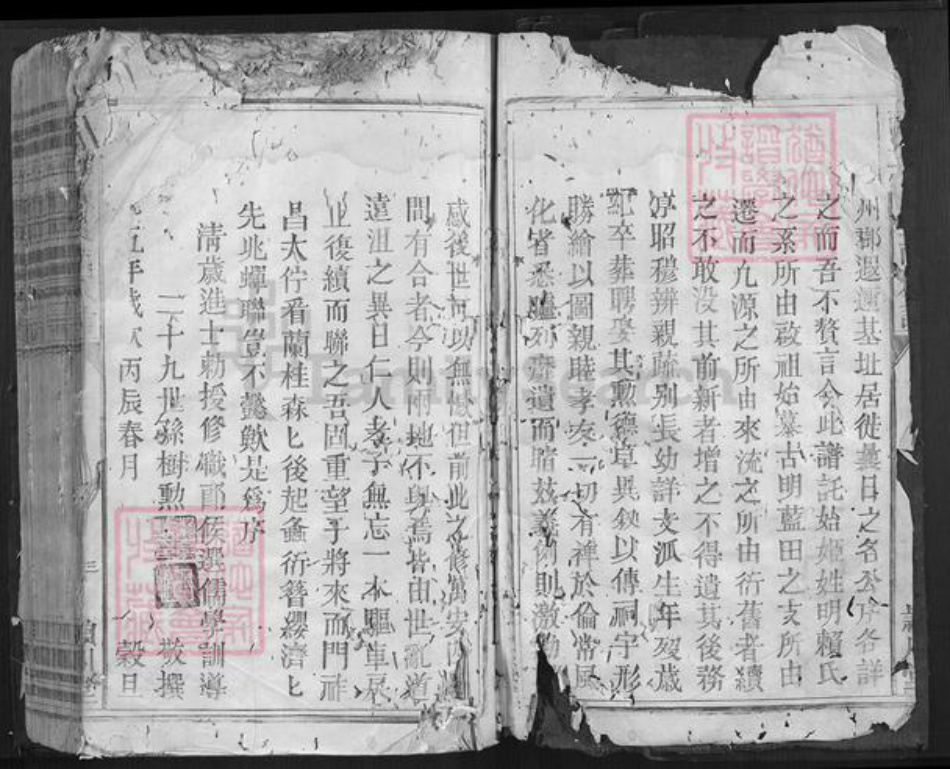 州鄉遐邇基址居徙曩日之名公序各詳
之而吾不贅言今此譜託始姬姓明賴氏
之系所由啟祖始墓古明藍田之支所由
遷而九源之所由來流之所由衍舊者續
之不敢没其前新者增之不得遺其後務
昭穆辨親疏别長幼詳支派生年殁葬
卒葬聘娶其勲德卓異錄以傳祠宇形
勝繪以圖親睦孝友一切有裨於倫常風
化者悉臚列靡遺而睹兹義例則激勸
感後世可以無憾但前此之修萬安
間有合者今則兩地不與焉皆由世亂道
遠沮之異日仁人孝子無忘一本驅車
復續而聯之吾固重望于將來而門祚
昌大佇看蘭桂森匕後起螽衍簪纓濟匕
先兆蟬聯豈不懿歟是爲序
清歲進士勅授修職郎候選儒學訓導
二十九世孫樹勲 敬撰
五年歲次丙辰春月 榖旦
三
FamilySearch